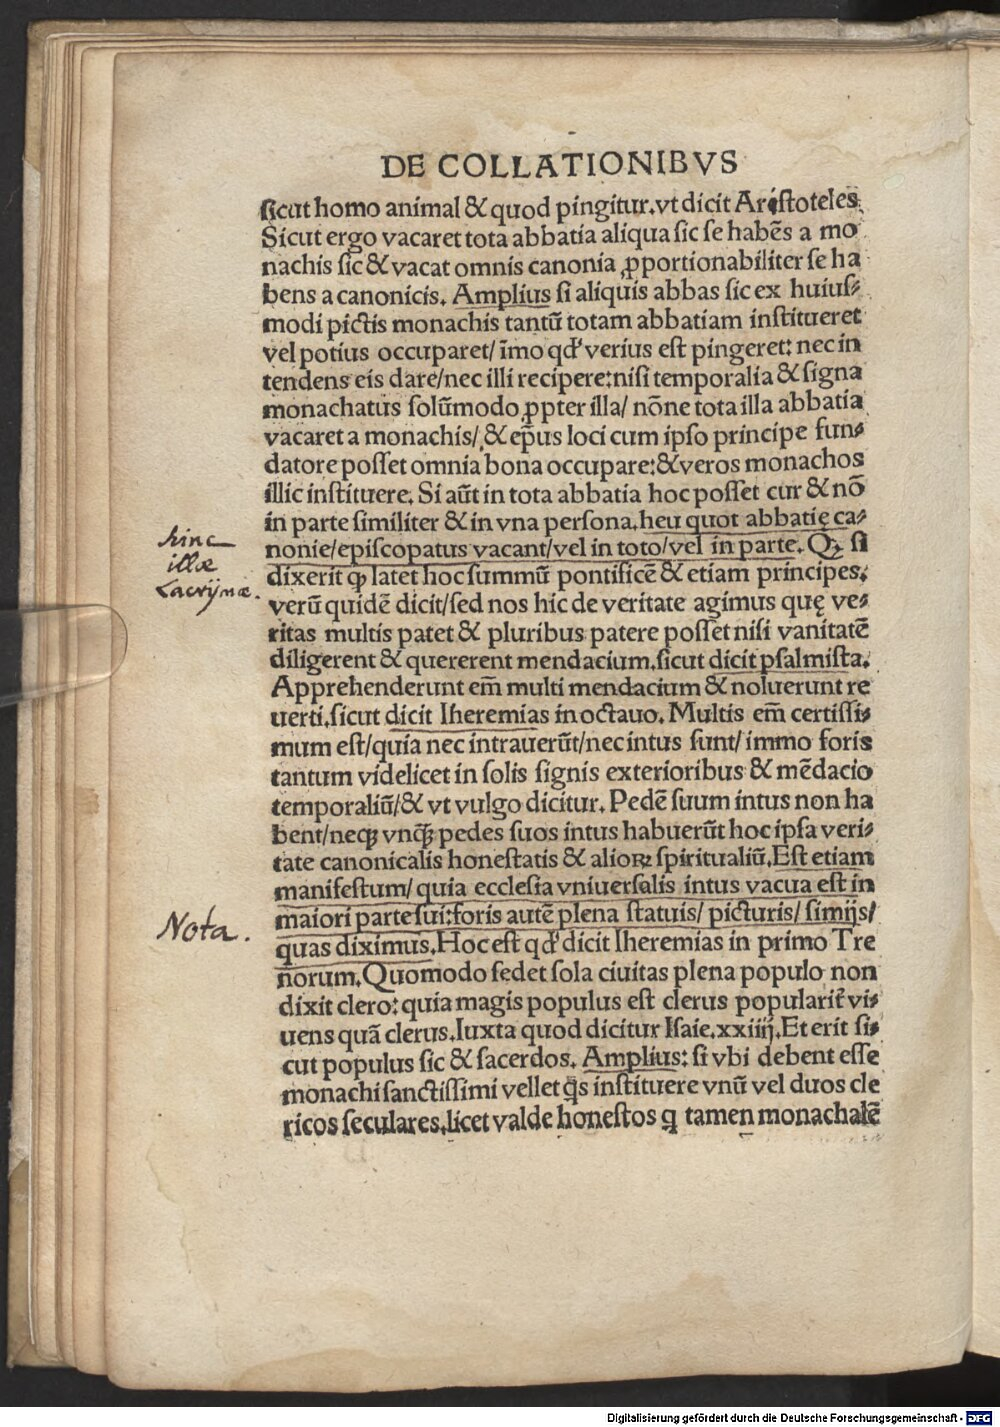 DE COLLATIONIBVS
sicut homo animal & quod pingitur. vt dicit Aristoteles.
Sicut ergo vacaret tota abbatia aliqua sic se habēs a mo
nachis sic & vacat omnis canonia ꝓportionabiliter se ha
bens a canonicis. Amplius si aliquis abbas sic ex huius⸗
modi pictis monachis tantū totam abbatiam institueret
vel potius occuparet/ īmo qđ verius est pingeret: nec in
tendens eis dare/nec illi recipere: nisi temporalia & signa
monachatus solūmodo ꝓpter illa/ nōne tota illa abbatia
vacaret a monachis/ & ep̄us loci cum ipso principe fun⸗
datore posset omnia bona occupare: & veros monachos
illic instituere. Si aūt in tota abbatia hoc posset cur & nō
in parte similiter & in vna persona. heu quot abbatię ca⸗
nonie/episcopatus vacant/vel in toto/vel in parte. Qꝫ si
dixerit ꝙ latet hoc summū pontificē & etiam principes.
verū quidē dicit/sed nos hic de veritate agimus quę ve⸗
ritas multis patet & pluribus patere posset nisi vanitatē
diligerent & quererent mendacium. sicut dicit psalmista.
Apprehenderunt em̄ multi mendacium & noluerunt re
uerti. sicut dicit Iheremias in octauo. Multis em̄ certissi⸗
mum est/quia nec intrauerūt/nec intus sunt/ immo foris
tantum videlicet in solis signis exterioribus & mēdacio
temporaliū/& vt vulgo dicitur. Pedē suum intus non ha
bent/neqꝫ vnqꝫ̄ pedes suos intus habuerūt hoc ipsa veri⸗
tate canonicalis honestatis & alioꝝ spiritualiū. Est etiam
manifestum/ quia ecclesia vniuersalis intus vacua est in
maiori parte sui: foris autē plena statuis/ picturis/ simijs/
quas diximus. Hoc est qđ dicit Iheremias in primo Tre
norum. Quomodo sedet sola ciuitas plena populo non
dixit clero: quia magis populus est clerus popularit̄ vi⸗
uens quā clerus. Iuxta quod dicitur Isaie. xxiiij. Et erit si⸗
cut populus sic & sacerdos. Amplius: si vbi debent esse
monachi sanctissimi vellet q̄s instituere vnū vel duos cle
ricos seculares. licet valde honestos q tamen monachalē
hinc
illæ
Lacrijmæ.
Nota.
Digitalisierung gefördert durch die Deutsche Forschungsgemeinschaft - DFG